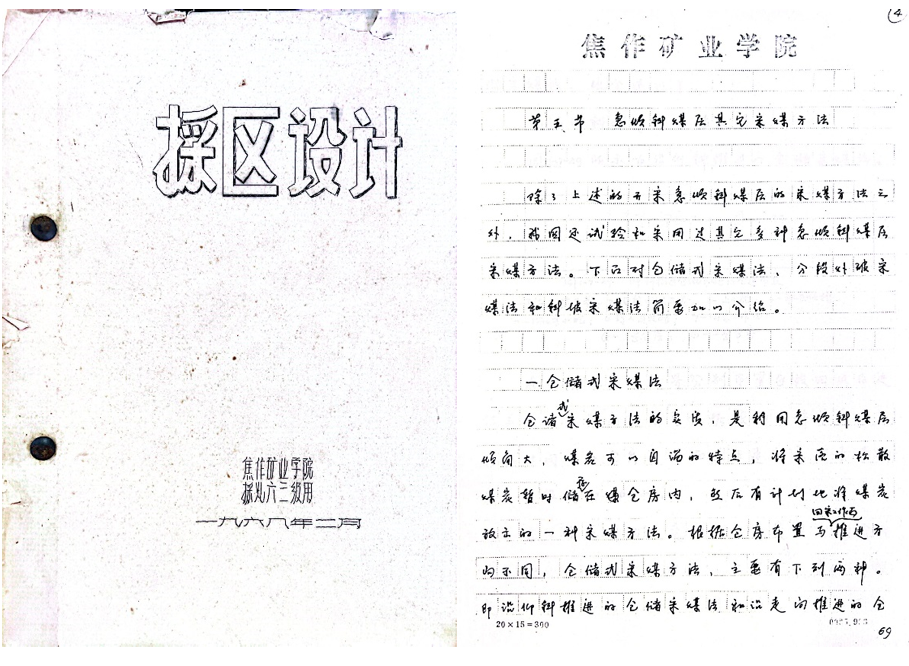 採区设计
焦作矿业学院
採煤六三级用
一九六八年二月
14
焦作矿业学院
第五节 急倾斜煤层其它采煤方法
除了上述的开采急倾斜煤层的采煤方法之
外，我国还试验和采用过其它多种急倾斜煤层
采煤方法。下面对仓储式采煤法、分段外破采
煤法和斜坡采煤法简要加以介绍。
一 仓储式采煤法
仓诸式采煤方法的实质，是利用急倾斜煤层
倾角大，煤岩可以自溜的特点，将采落的松散
煤炭暂时储存在煤仓房内，然后有计划地将煤炭
放出的一种采煤方法。根据仓房布置与回采工作面推进方
向不同，仓储式采煤方法，主要有下列两种。
即沿仰斜推进的仓储采煤法和沿走向推进的仓
20×15=300
69